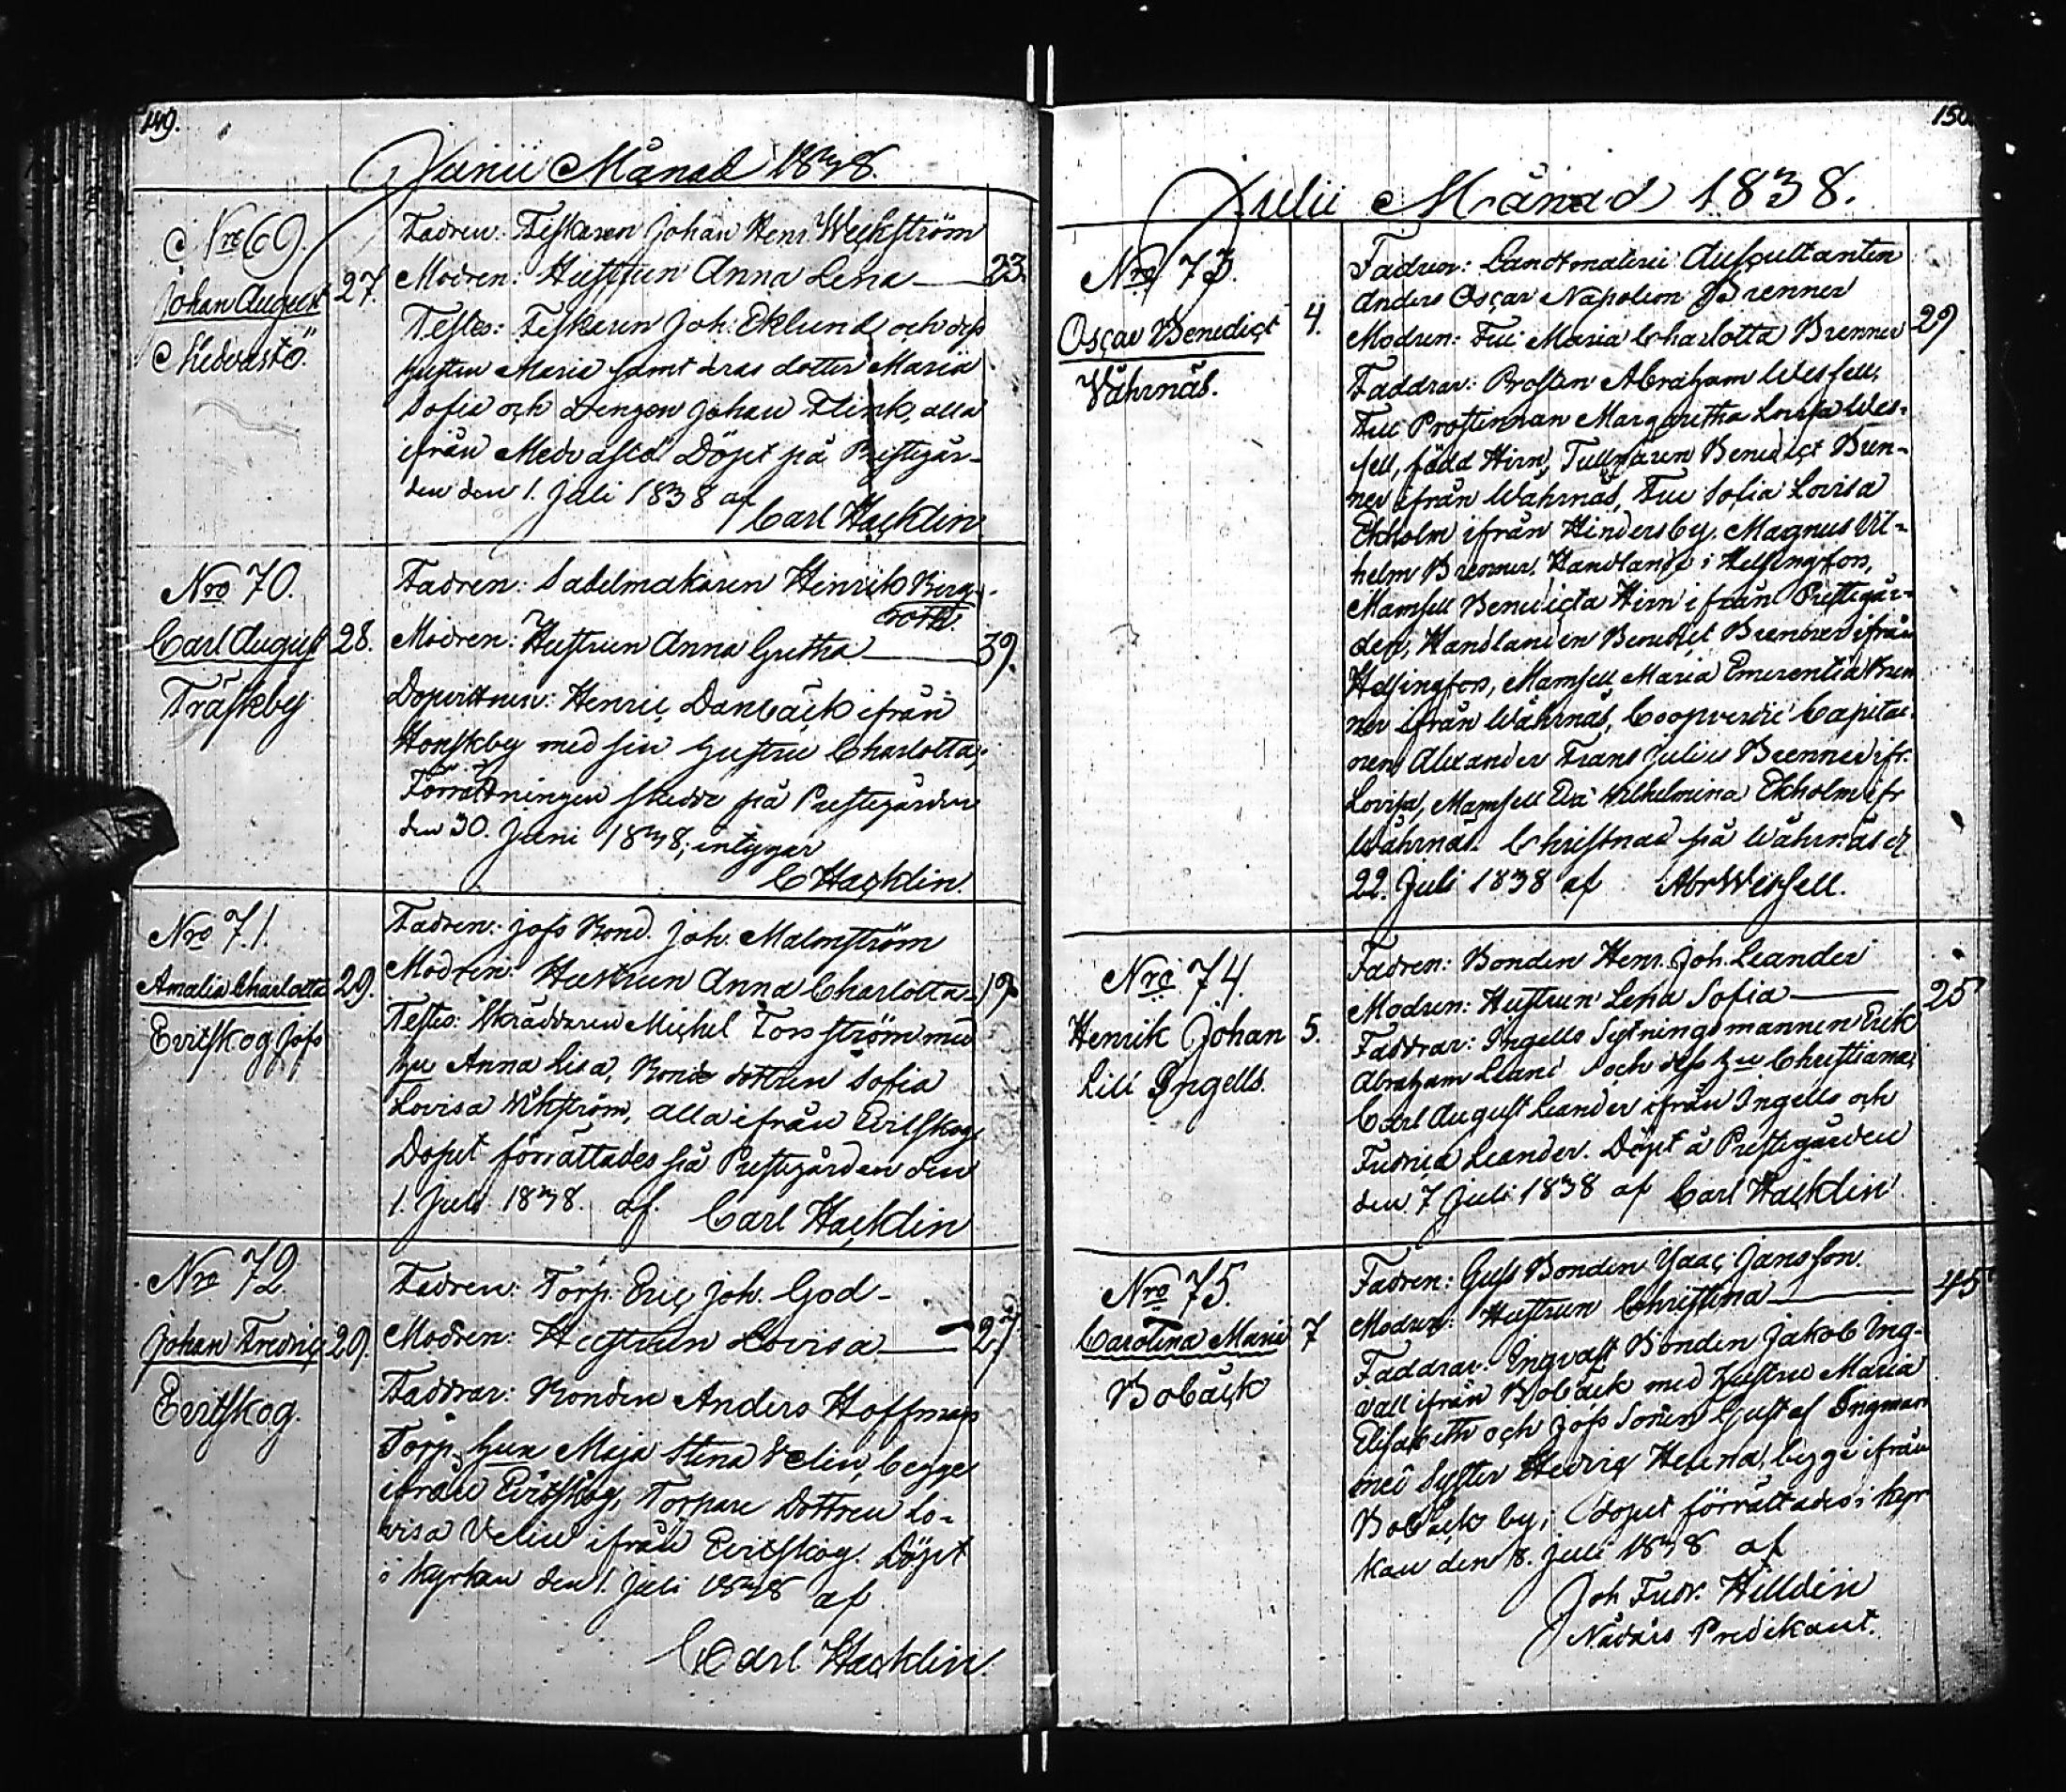 149.
Junii Månad 1838.
Nro 69.
Johan August
Medvastö.
27.
Fadren: Fiskaren Johan Henr. Weckström
Modren: Hustrun Anna Lena — 23.
Testes: Fiskaren Joh. Eklund och dess
hustru Maria samt deras dotter Maria
Sofia och Drengen Johan Flink, alla
ifrån Medvastö Döpt på Prestegår-
den den 1. Juli 1838 af
Carl Hacklin
Nro 70.
Carl August
Träskby
28.
Fadren: Sadelmakaren Henrik Berg-
roth.
Modren: Hustrun Anna Gretha — 39.
Dopvittnen: Henric Danbäck ifrån
Honskby med sin hustru Charlotta;
Förrättningen skedde på Prestegården
den 30. Juni 1838; intygar
C Hacklin
Nro 71.
Amalia Charlotta
Evitskog Jofs
29.
Fadren: Jofs Bond. Joh. Malmström
Modren: Hustrun Anna Charlotta — 19
Testes: Skräddaren Michel Forsström med
hu Anna Lisa, Bonde dottren Sofia
Lovisa Wikström, alla ifrån Evitskog
Dopet förrättades på Prestegården den
1. Juli 1838. af. Carl Hacklin
Nro 72.
Johan Fredric
Evitskog.
29.
Fadren: Torp. Eric Joh. God-
Modren: Hustrun Lovisa — 27
Faddrar: Bonden Anders Hoffman
Torp. hun Maja Stina Velin, begge
ifrån Evitskog, Torpare Dottren Lo-
visa Velin ifrån Evitskog. Döpt
i kyrkan den 1. Juli 1838 af
Carl Hacklin.
150.
Julii Månad 1838.
Nro 73.
Oscar Benedict
Vährnäs.
4.
Fadren: Landtmäteri Auscultanten
Anders Oscar Napoleon Brenner
Modren: Fru Maria Charlotta Brenner 29
Faddrar: Prosten Abraham Wesell,
Fru Prostinnan Margaretha Lovisa Wes-
sell, född Hirn, Tullnären Benedict Bren-
ner ifrån Währnäs, Fru Sofia Lovisa
Ekholm ifrån Hindersby. Magnus Vil-
helm Brenner Handlande i Helsingfors,
Mamsell Benedicta Hirn ifrån Prestegår-
den, Handlanden Benedict Brenner ifrån
Helsingfors, Mamsell Maria Emerentia Bren
ner ifrån Währnäs, Coopverdie Capitai
nen Alexander Frans Julius Brenner ifr.
Lovisa, Mamsell Eva Wilhelmina Ekholm ifr
Währnäs. Christnad på Währnäs d.
22. Juli 1838 af Abr Wesell.
Nro 74.
Henrik Johan
Lill Ingells.
5.
Fadren: Bonden Henr. Joh. Leander
Modren: Hustrun Lena Sofia — 25
Faddrar: Ingells Sytningsmannen Erik
Abraham Leand och dess hu Christiana,
Carl August Leander ifrån Ingells och
Fredrica Leander. Döpt å Prestegården
den 7 Juli 1838 af Carl Hacklin
Nro 75.
Carolina Maria
Bobäck
7
Fadren: Guss Bonden Isaac Jansson.
Modren: Hustrun Christina — 45
Faddrar: Ingvast Bonden Jakob Ing-
vall ifrån Bobäck med hustru Maria
Elisabeth och Jofs Sonen Gustaf Ingman
med Syster Hedvig Helena, begge ifrån
Bobäck by; Dopet förrättades i kyr
kan den 8. Juli 1838 af
Joh Fredr. Hilldin
Nådårs Predikant.